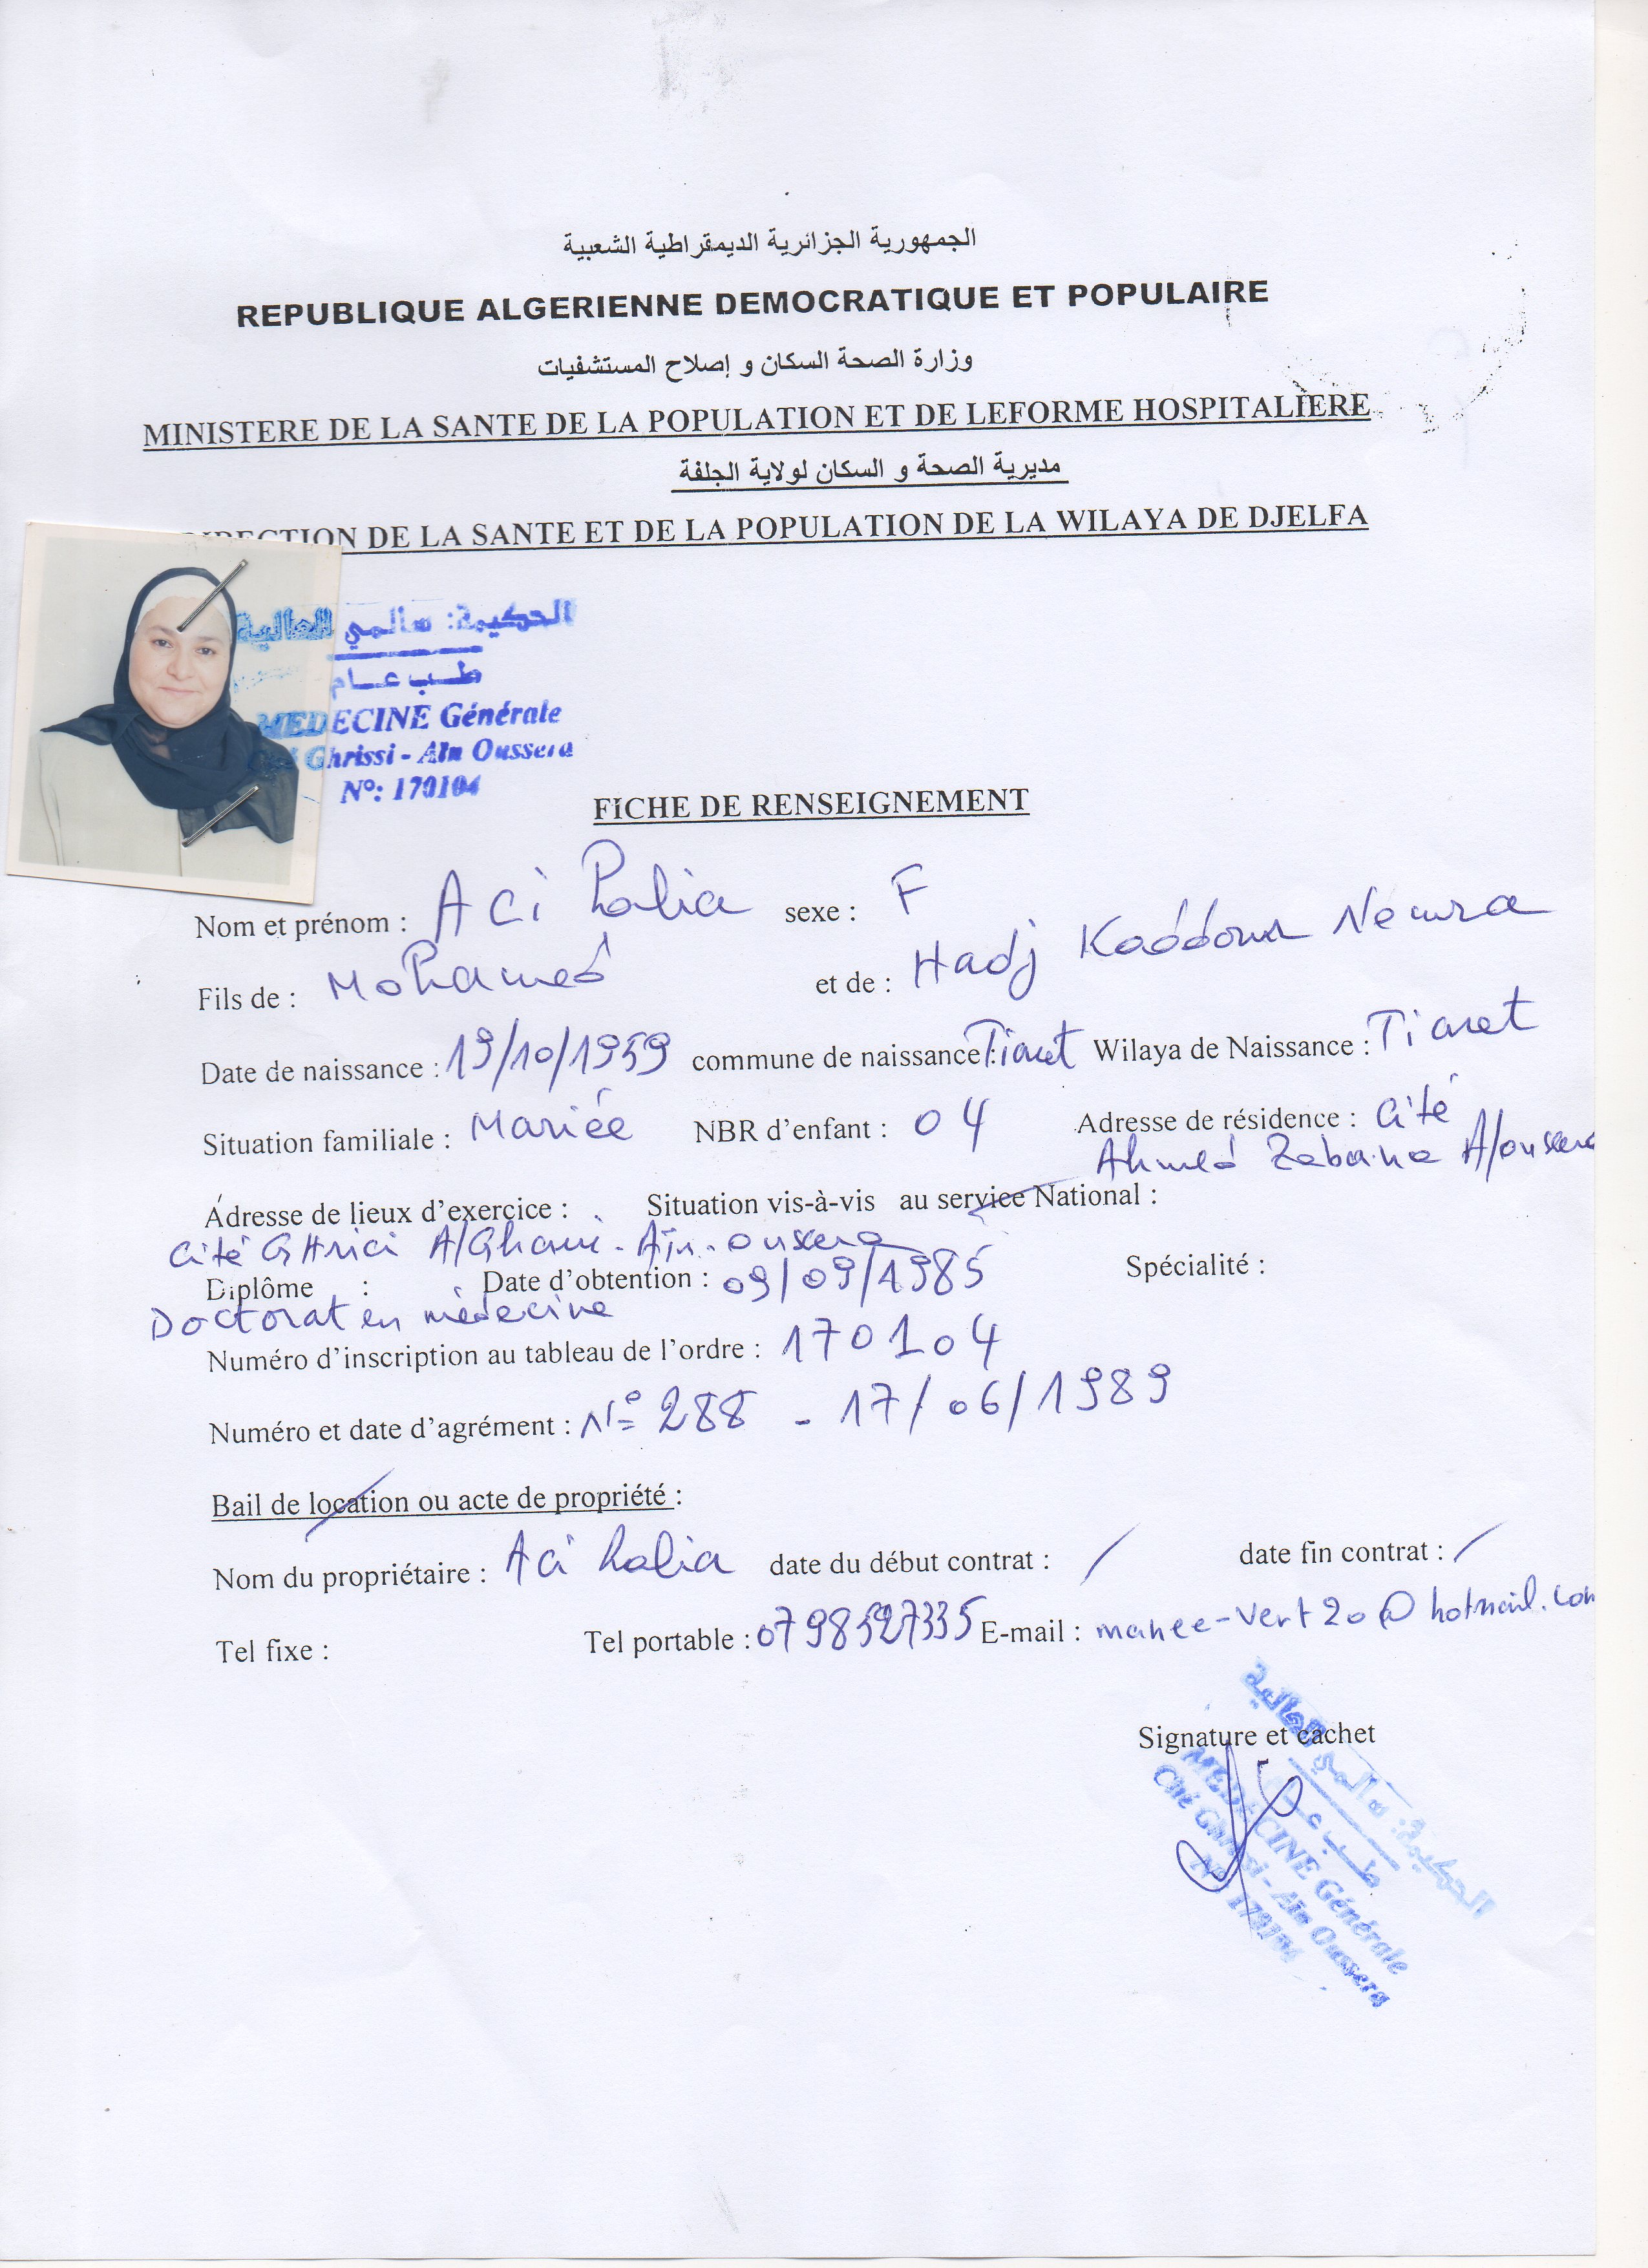 الجمهورية الجزائرية الديمقراطية الشعبية
REPUBLIQUE ALGERIENNE DEMOCRATIQUE ET POPULAIRE
وزارة الصحة السكان و إصلاح المستشفيات
MINISTERE DE LA SANTE DE LA POPULATION ET DE LEFORME HOSPITALIERE
مديرية الصحة و السكان لولاية الجلفة
DIRECTION DE LA SANTE ET DE LA POPULATION DE LA WILAYA DE DJELFA
الحكيمة: سالمي العالية
طب عام
MEDECINE Générale
Cité Ghrissi - Aïn Oussera
N°: 170104
FICHE DE RENSEIGNEMENT
Nom et prénom : Aci sexe : F
Fils de : Mohamed et de : Hadj Kaddour
Date de naissance : 19/10/1959 commune de naissance : Tiaret Wilaya de Naissance : Tiaret
Situation familiale : Mariée NBR d'enfant : 04 Adresse de résidence : Cité
Ahmed Zabana A/oussera
Adresse de lieux d'exercice : Situation vis-à-vis au service National :
Cité A/Ghani - Aïn-oussera
Diplôme : Date d'obtention : 09/09/1985 Spécialité :
Doctorat en médecine
Numéro d'inscription au tableau de l'ordre : 170104
Numéro et date d'agrément : N° 288 - 17/06/1989
Bail de location ou acte de propriété :
Nom du propriétaire : Aci date du début contrat : / date fin contrat : /
Tel fixe : Tel portable : 0798527335 E-mail :
Signature et cachet
الحكيمة: سالمي العالية
طب عام
MEDECINE Générale
Cité Ghrissi - Aïn Oussera
N°: 170104